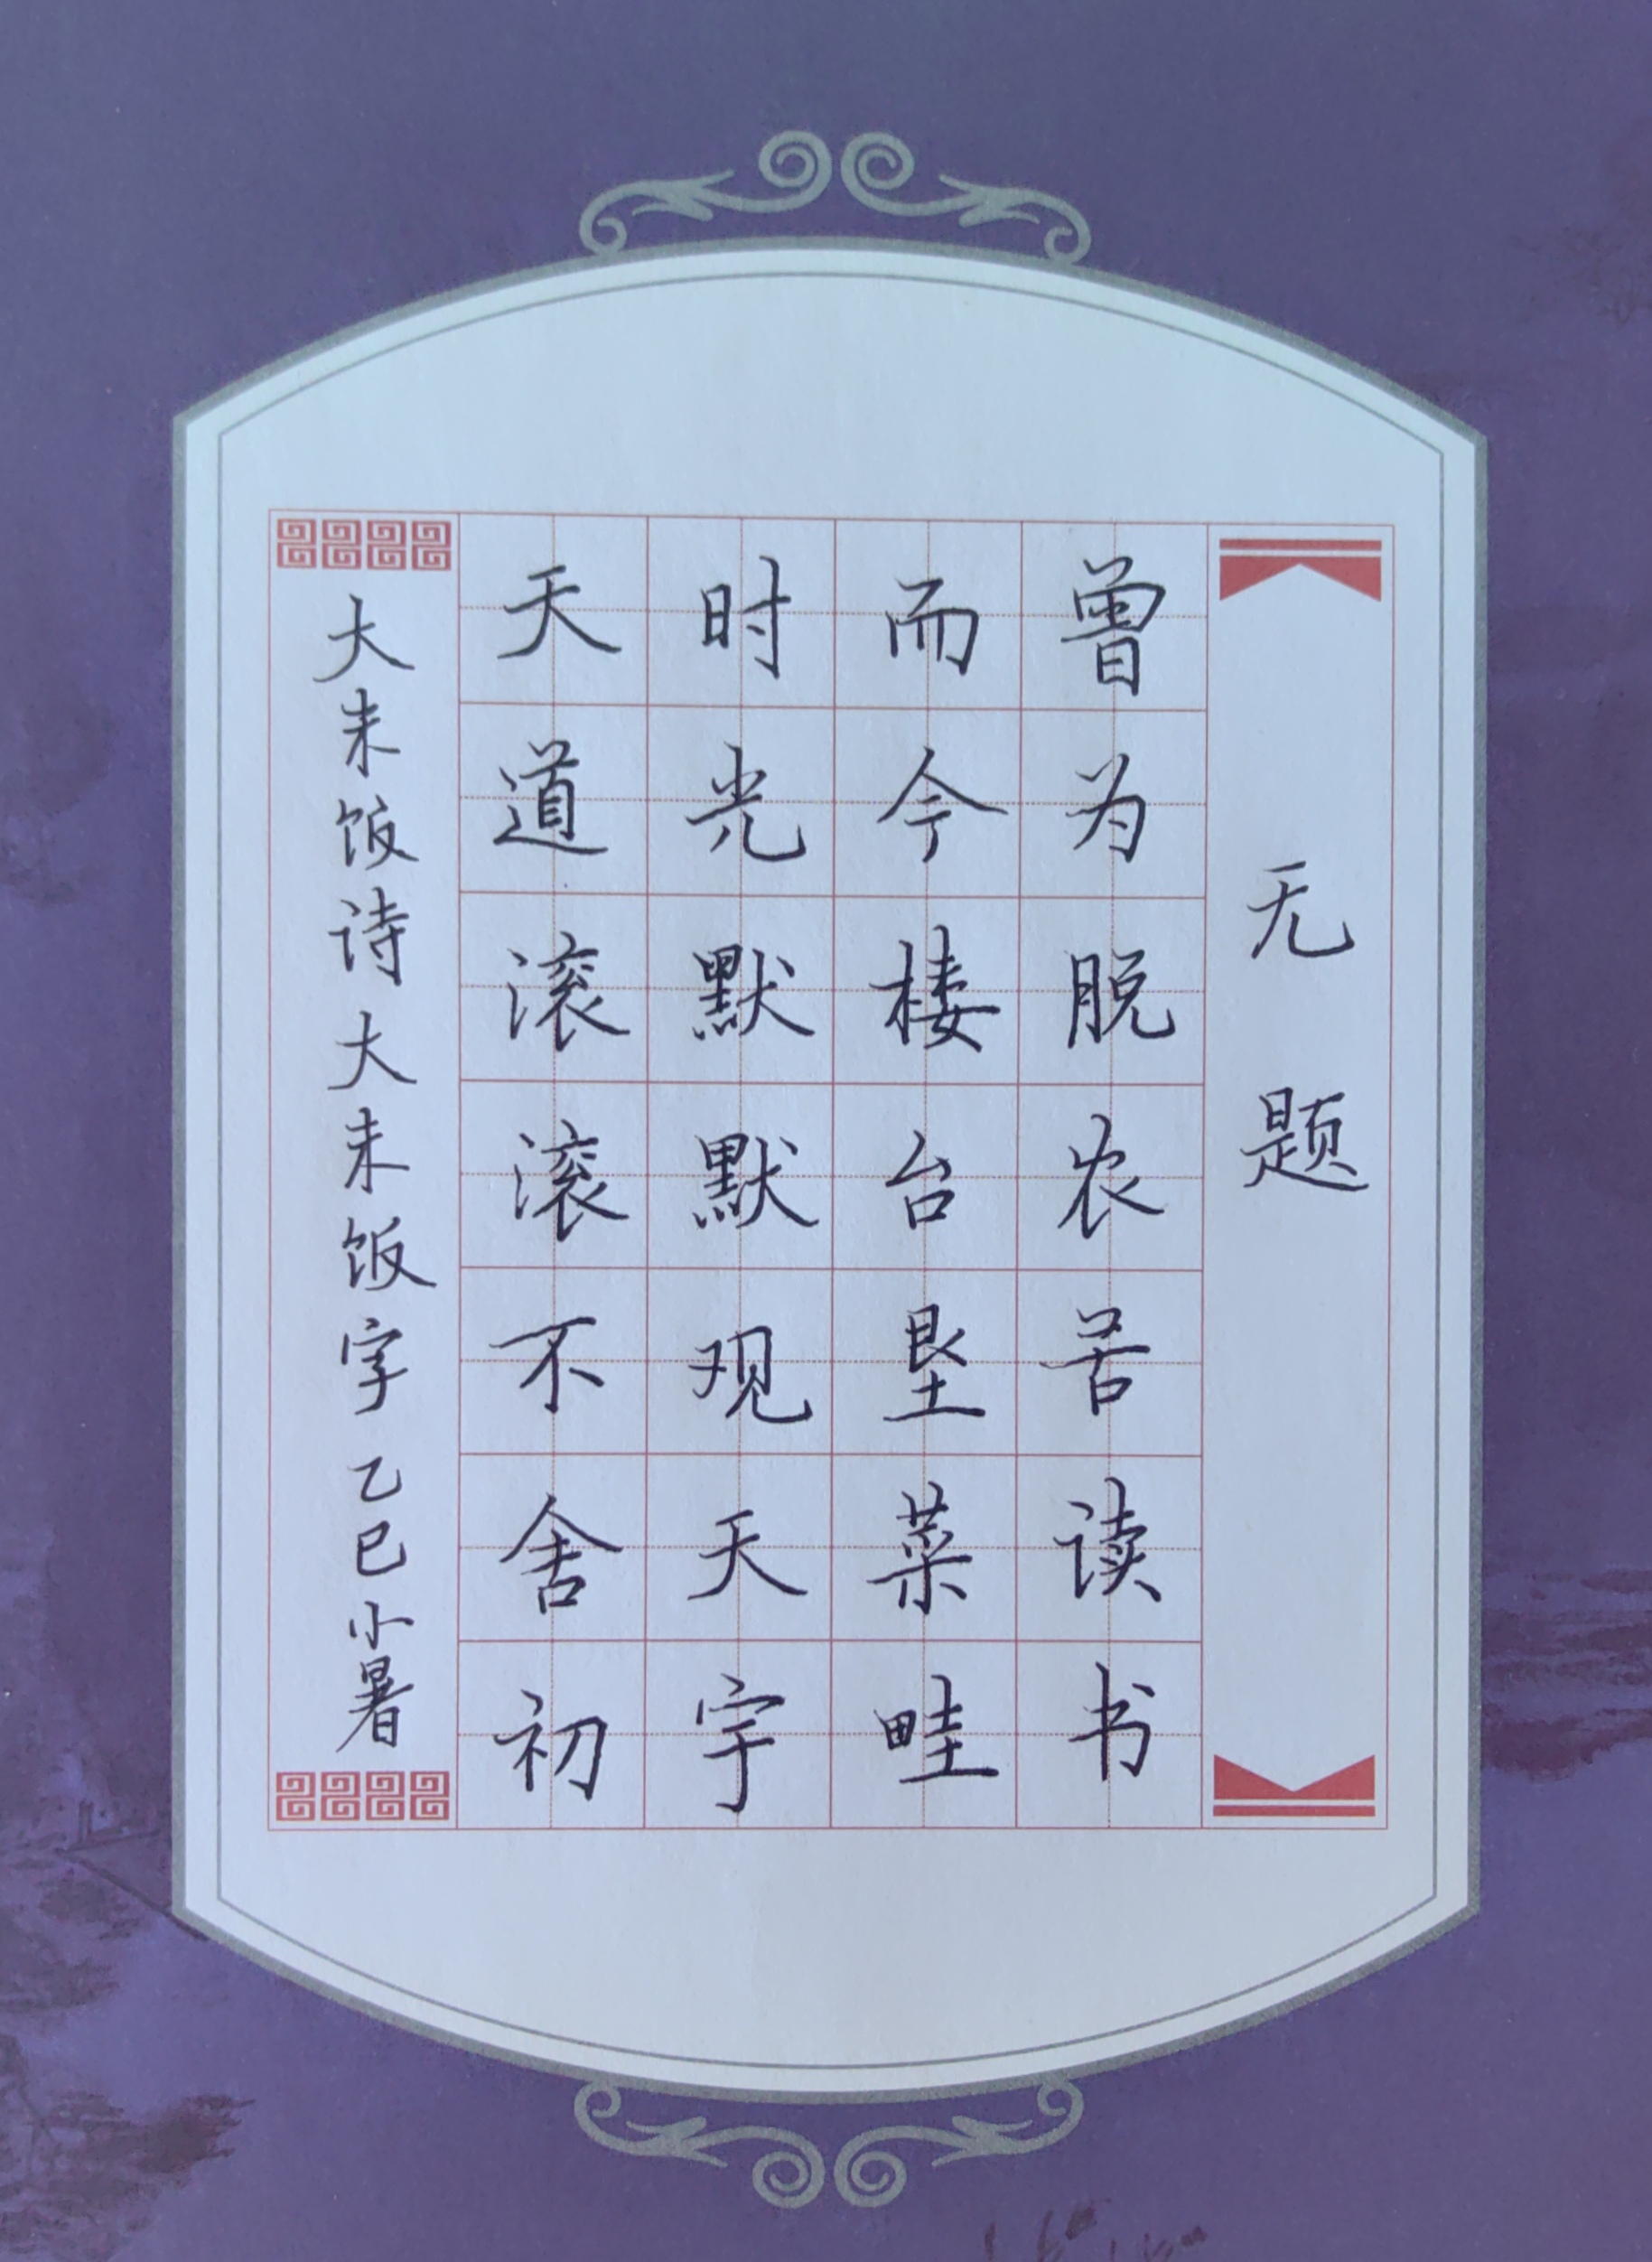 无题
曾为脱农苦读书
而今楼台垦菜畦
时光默默观天宇
天道滚滚不舍初
大耒饭诗大耒饭字乙巳小暑